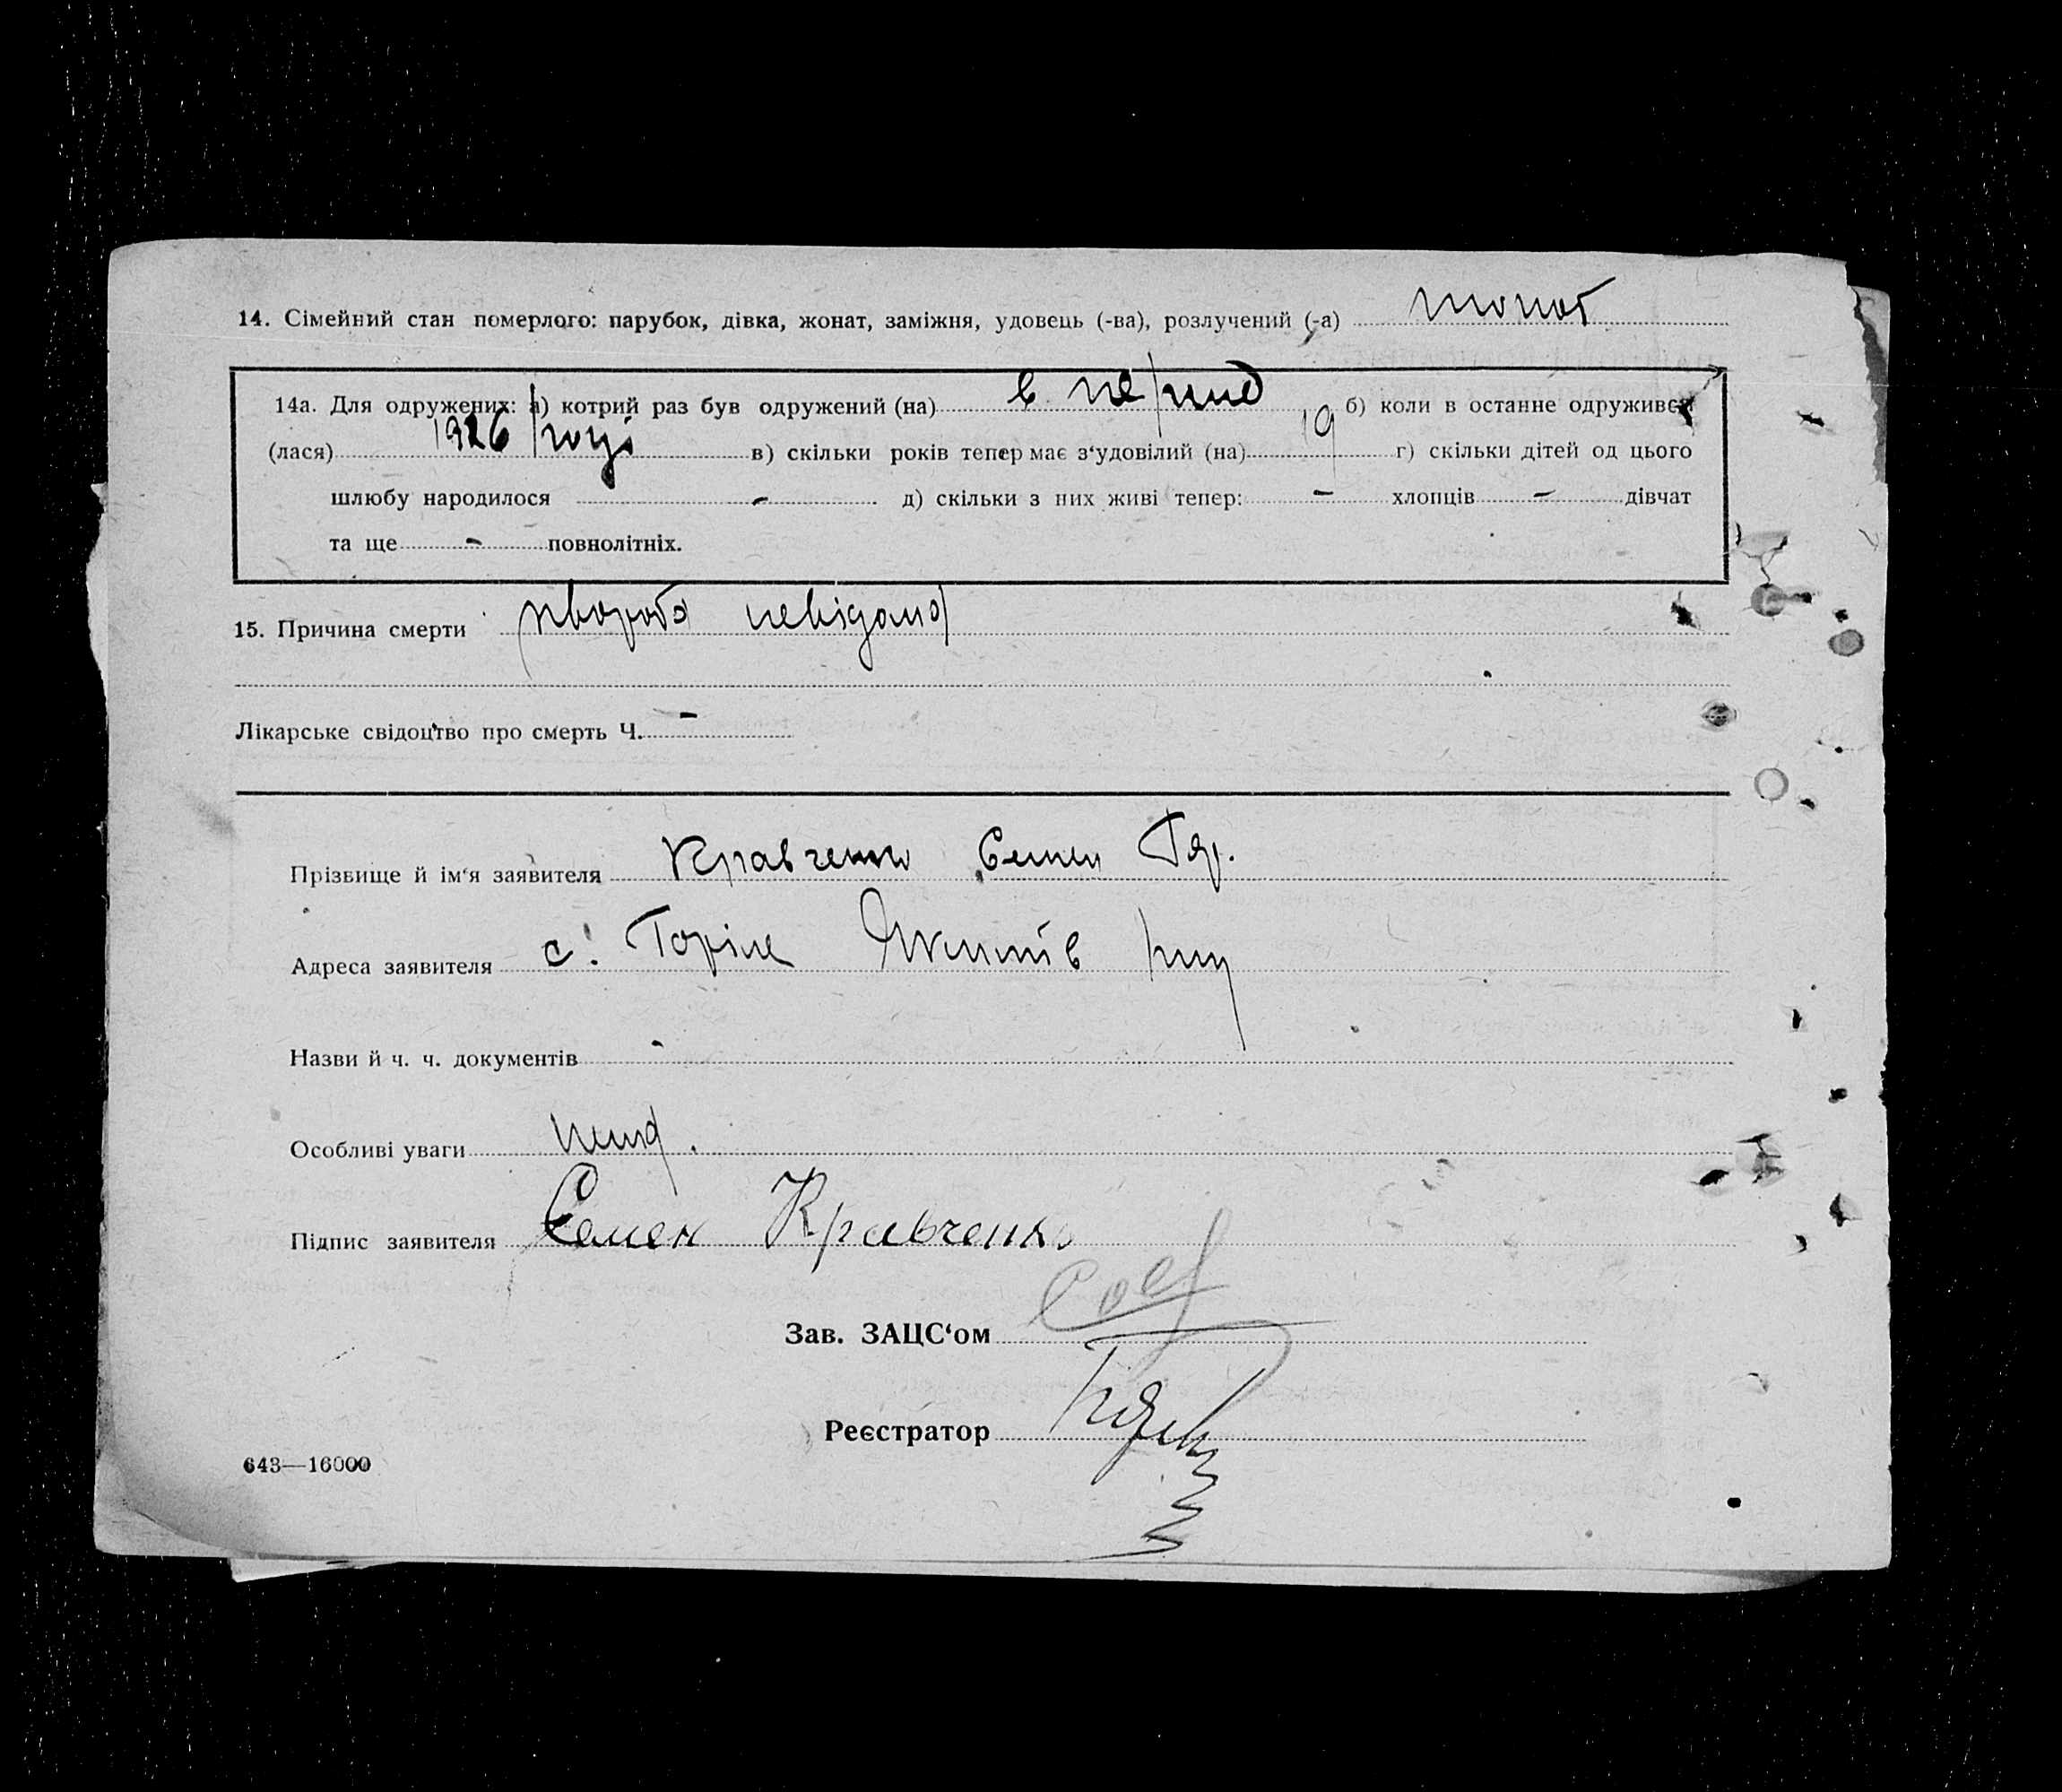 14. Сімейний стан померлого: парубок, дівка, жонат, заміжня, удовець (-ва), розлучений (-а) жонат
14а. Для одружених: а) котрий раз був одружений (на) в перше б) коли в останнє одруживсь
(лася) 1926 році в) скільки років тепер має з‘удовілий (на) 19 г) скільки дітей од цього
шлюбу народилося - д) скільки з них живі тепер: - хлопців - дівчат
та ще - повнолітніх.
15. Причина смерти хвороба невідома
Лікарське свідоцтво про смерть Ч. -
Прізвище й ім‘я заявителя Кравченко Семен
Адреса заявителя с. Горіле
Назви й ч. ч. документів -
Особливі уваги
Підпис заявителя Семен Кравченко
Зав. ЗАЦС‘ом
Реєстратор
643—16000